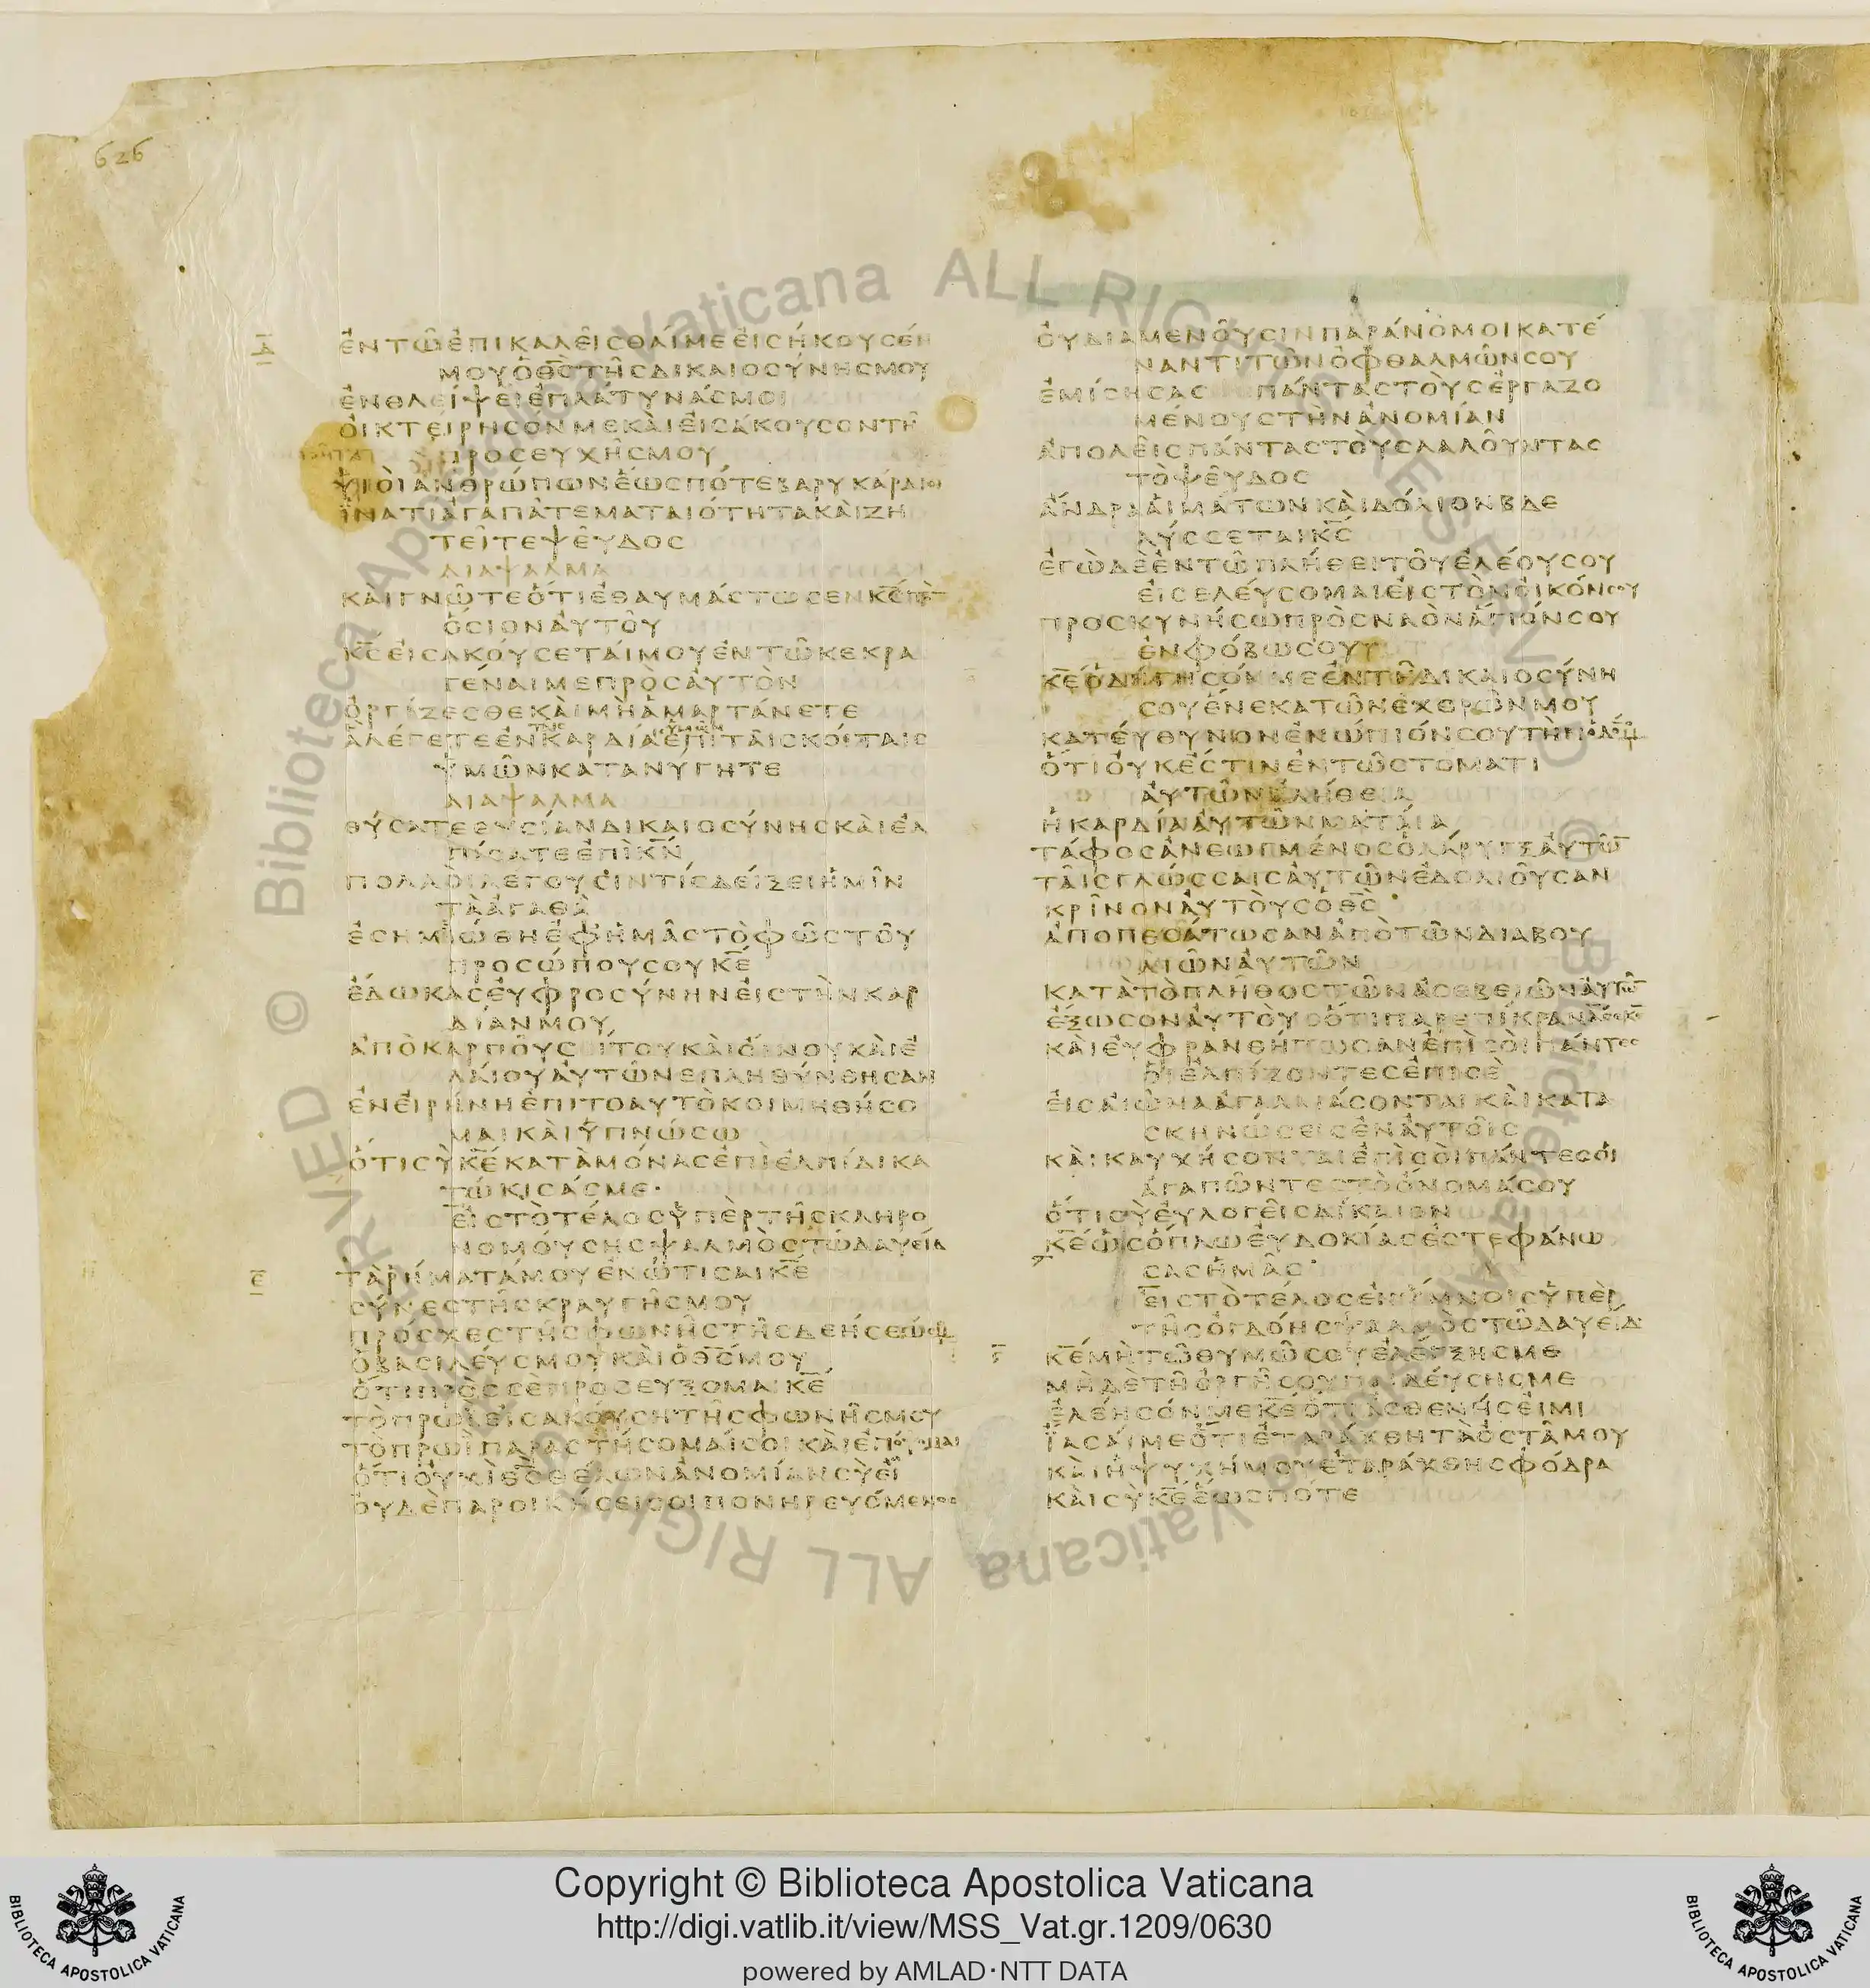 626
Δ
ἐντῶἐπικαλεῖσθαίμεεἰσήκουσέν
μουὁθ̅ς̅τῆςδικαιοσύνηςμου
ἐνθλείψειἐπλάτυνάςμοι
ὀικτείρησόνμεκαὶεἰσάκουσοντῆ
προσευχῆςμου
ὑιὸιἀνθρώπωνἕωςπότεβαρυκάρδιοι
ἵνατίἀγαπᾶτεματαιότητακαὶζη
τεῖτεψεῦδος
διαψαλμα
καὶγνῶτεὅτιἐθαυμάστωσενκ̅ς̅τὸ
ὅσιοναὐτοῦ
κ̅ς̅εἰσακούσεταίμουἐντῶκεκρα
γέναιμεπρὸςαὐτὸν
ὀργίζεσθεκαὶμὴἁμαρτάνετε
ἃλέγετεἐνκαρδίαἐπὶταῖςκοίταις
ὑμῶνκατανύγητε
διαψαλμα
θύσατεθυσίανδικαιοσύνηςκαὶἐλ
πίσατεἐπὶκ̅ν̅
πολλὸιλέγουσιντίςδείξειἡμῖν
τὰἀγαθὰ
ἐσημιώθηἐφἡμᾶςτὸφῶςτοῦ
προσώπουσουκ̅ε̅
ἔδωκαςεὐφροσύνηνεἰςτὴνκαρ
δίανμου
ἀπὸκαρποῦσίτουκαὶοἴνουκαὶἐ
λαίουαὐτῶνεπληθύνθησαν
ἐνεἰρήνηἐπιτοαυτὸκοιμηθήσο
μαικαὶὑπνώσω
ὅτισὺκ̅ε̅κατὰμόναςἐπιἐλπίδικα
τώκισάςμε·
εἰςτὸτέλοςὑπὲρτῆςκληρο
νομούσηςψαλμὸςτῶδαυείδ
Ε
τὰρήματάμουἐνώτισαικ̅ε̅
σύνεςτῆςκραυγῆςμου
πρόσχεςτῆςφωνῆςτῆςδεήσεώςμου
ὁβασιλεύςμουκαὶὁθ̅ς̅μου
ὅτιπρὸςσὲπροσεύξομαικ̅ε̅
τὸπρωῒεἰσακούσητῆςφωνῆςμου
τὸπρωῒπαραστήσομαίσοικαὶἐπόψομαι
ὅτιοὐχὶθ̅ς̅θέλωνἀνομίανσὺεἶ
οὐδὲπαροικήσεισοιπονηρευόμενος
οὐδιαμενοῦσινπαράνομοικατέ
ναντιτῶνὀφθαλμῶνσου
ἐμίσησαςπάνταςτοὺςἐργαζο
μένουςτὴνἀνομίαν
ἀπολεῖςπάνταςτοὺςλαλοῦντας
τὸψεῦδος
ἄνδρααἱμάτωνκαὶδόλιονβδε
λύσσεταικ̅ς̅
ἐγὼδὲἐντῶπλήθειτοῦἐλέουςσου
εἰσελεύσομαιεἰςτὸνοἶκόνσου
προσκυνήσωπρὸςναὸνἅγιόνσου
ἐνφόβωσου
κ̅ε̅ὁδήγησόνμεἐντῆδικαιοσύνη
σουἕνεκατῶνἐχθρῶνμου
κατεύθυνονἐνώπιόνσουτὴνὁδόνμου
ὅτιοὐκέστινἐντῶστοματι
αὐτῶνἀλήθεια
ἡκαρδίααὐτῶνματαία
τάφοςἀνεωγμένοςὁλάρυγξαὐτῶν
ταῖςγλώσσαιςαὐτῶνἐδολιοῦσαν
κρῖνοναὐτοὺςὁθ̅ς̅
ἀποπεσάτωσανἀπὸτῶνδιαβου
λιῶναὐτῶν
κατὰτὸπλῆθοςτῶνἀσεβειῶναὐτῶν
ἔξωσοναὐτοὺςὅτιπαρεπίκρανάνσεκ̅ε̅
καὶεὐφρανθήτωσανἐπὶσοὶπάντες
οἱἐλπίζοντεςἐπισὲ
εἰςαἰῶναἀγαλλιάσονταικαὶκατα
σκηνώσειςἐναὐτοῖς
καὶκαυχήσονταιἐπὶσοὶπάντεςοἱ
ἀγαπῶντεςτὸὄνομάσου
ὅτισὺεὐλογεῖςδίκαιον
κ̅ε̅ὡςὅπλωεὐδοκίαςἐστεφάνω
σαςἡμᾶς·
εἰςτὸτέλοςἐνὕμνοιςὑπὲρ
τῆςὀγδόηςψαλμὸςτῶδαυείδ
ϛ
κ̅ε̅μὴτῶθυμῶσουἐλέγξηςμε
μηδὲτῆὀργῆσουπαιδεύσηςμε
ἐλέησόνμεκ̅ε̅ὅτιἀσθενήςεἰμι
ἴασαίμεὅτιἐταράχθητὰὀστᾶμου
καὶἡψυχήμουἐταράχθησφόδρα
καὶσὺκ̅ε̅ἕωςπότε
© Biblioteca Apostolica Vaticana ALL RIGHTS RESERVED
© Biblioteca Apostolica Vaticana ALL RIGHTS RESERVED
Copyright © Biblioteca Apostolica Vaticana
http://digi.vatlib.it/view/MSS_Vat.gr.1209/0630
powered by AMLAD·NTT DATA
BIBLIOTECA APOSTOLICA VATICANA
BIBLIOTECA APOSTOLICA VATICANA